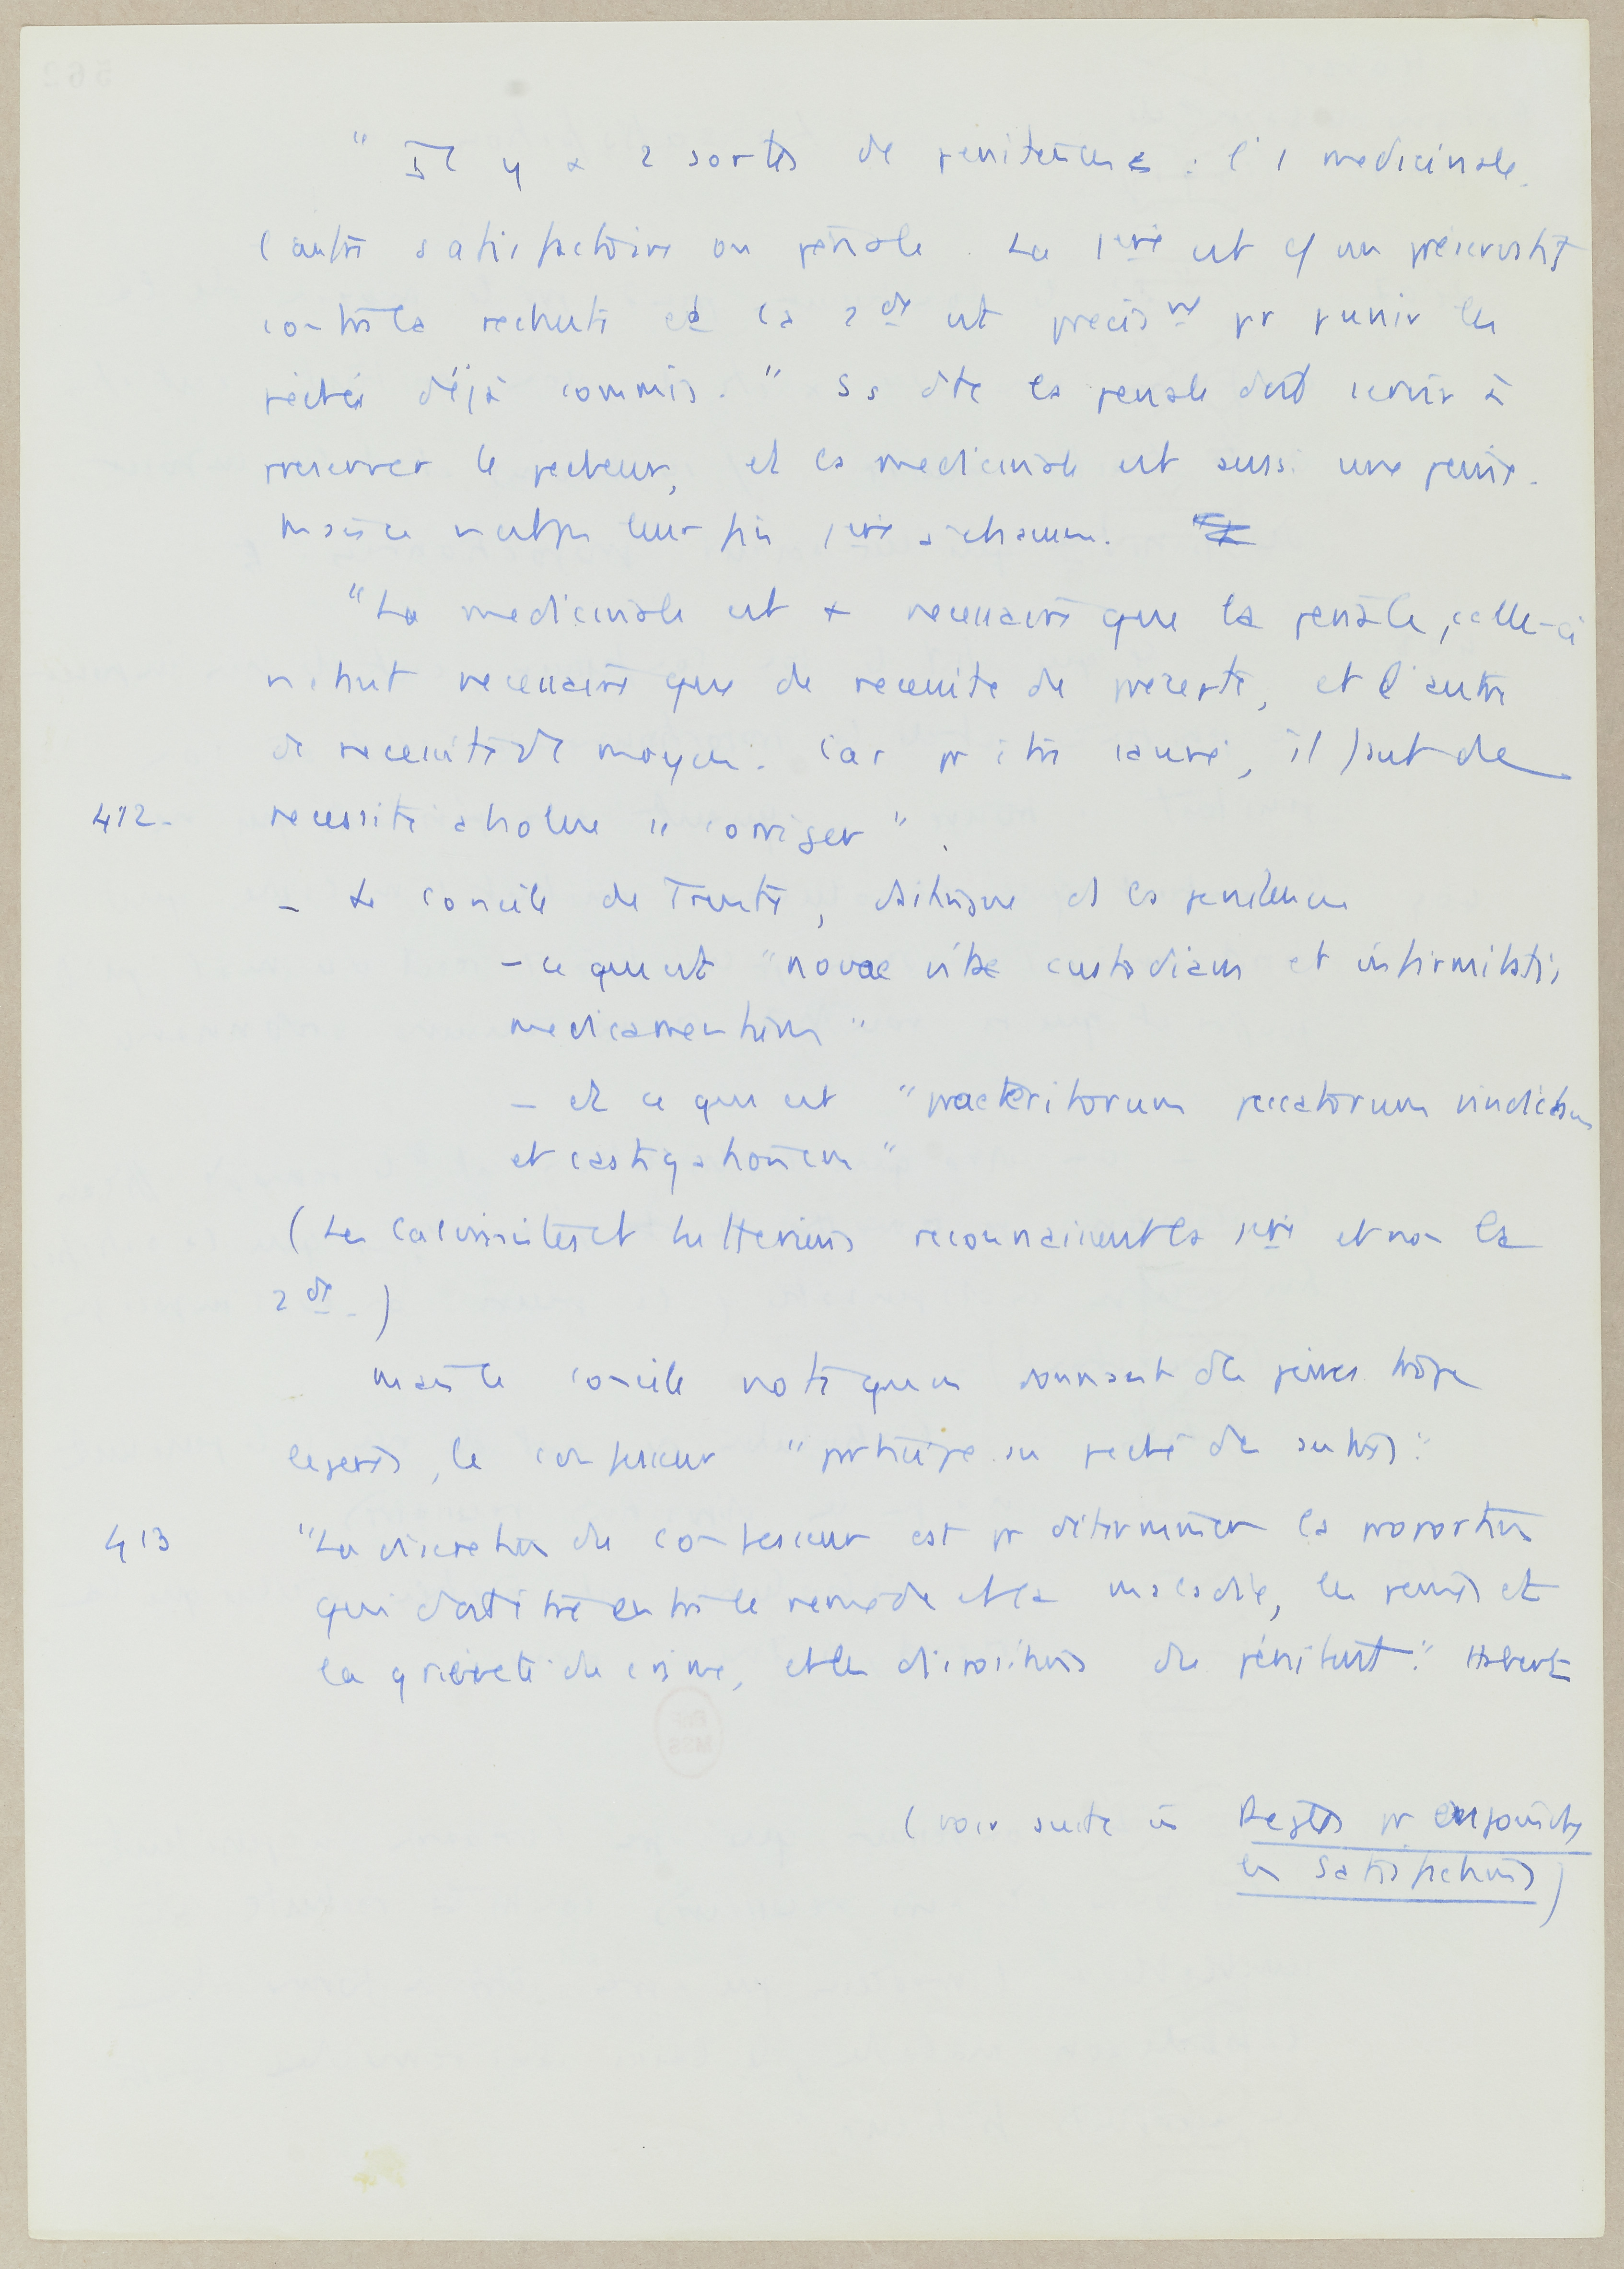 " Il y a 2 sortes de penitences : l'1 medicinale.
l'autre satisfactoire ou pénale. La 1ere est cf un préservatif
contre la rechute et la 2de est precist pr punir les
péchés déjà commis. " Ss dte la penale doit servir à
preserver le pecheur, et la medicinale est aussi une peine.
Mais ce n'est pas leur fin 1ere à chacune.
"La medicinale est + necessaire que la penale, celle-ci
n'etant necessaire que de necessite de precepte, et l'autre
de necessité de moyen. Car pr etre sauvé, il faut de
412- necessite absolue se corriger".
- Le Concile de Trente, distingue ds la penitence
- ce qui est "novae vitae custodiam et infirmitatis
medicamentum"
- et ce qui est "praeteritorum peccatorum vindictam
et castigationem"
(Les Calvinistes et Lutheriens reconnaissent la 1ere et non la
2de -)
mais le concile note qu'en donnant des peines trop
legeres, le confesseur "participe au peché des autres".
413 "La discretion du confesseur est pr déterminer la proportion
qui doit être entre le remede et la maladie, les peines et
la grièveté du crime, et les dispositions du pénitent". Habert
(voir suite in Regles pr enjoindre
les satisfactions)